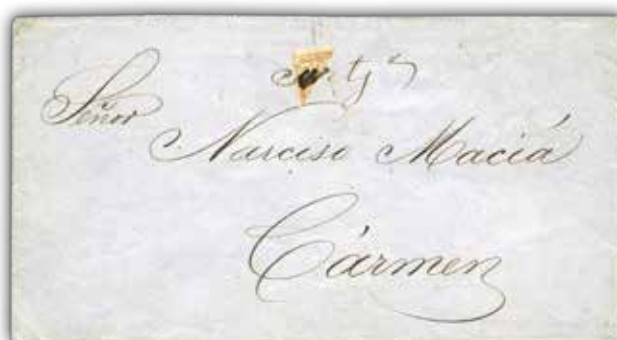 Señor
Narciso Maciá
Cármen